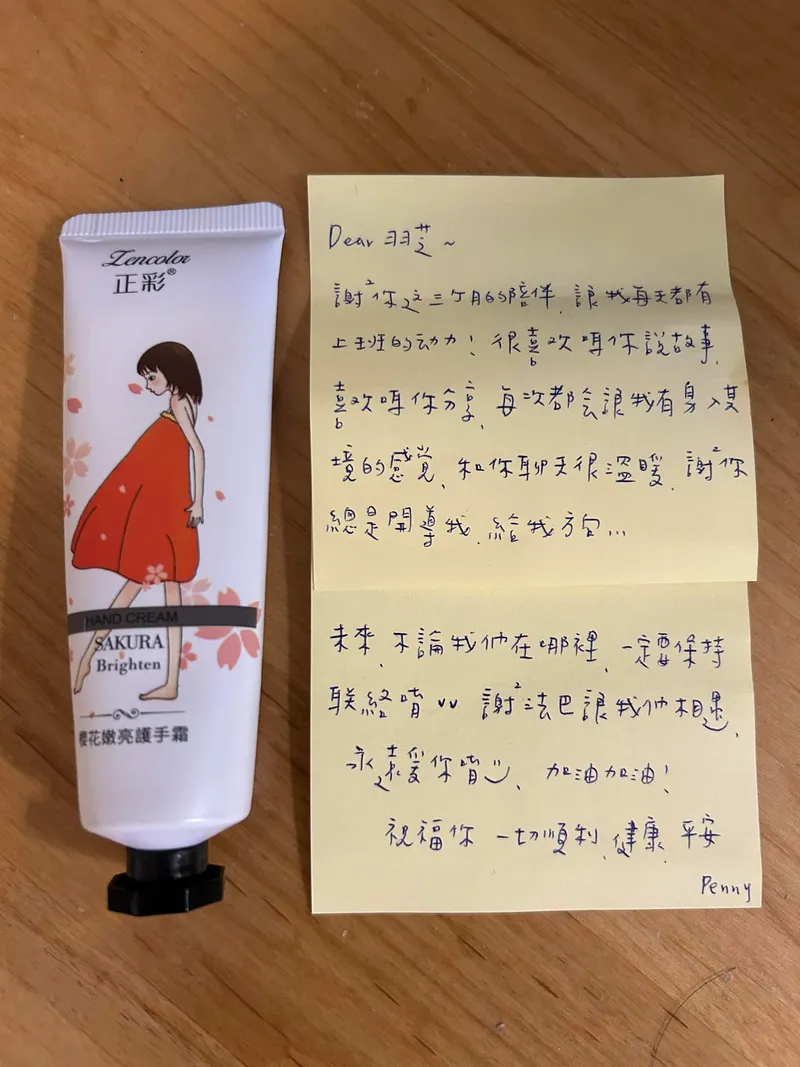 Zencolor
正彩®
HAND CREAM
SAKURA
Brighten
櫻花嫩亮護手霜
Dear 羽芝~
謝²你這三个月的陪伴,讓我每天都有
上班的动力! 很喜欢听你說故事,
喜欢听你分享,每次都会讓我有身入其
境的感覚,和你聊天很溫暖,謝²你
總是開導我,給我方向...
未來,不論我们在哪裡,一定要保持
联絡唷 vv 謝²法巴讓我们相遇,
永远愛你唷,加油加油!
祝福你 一切順利,健康,平安
Penny